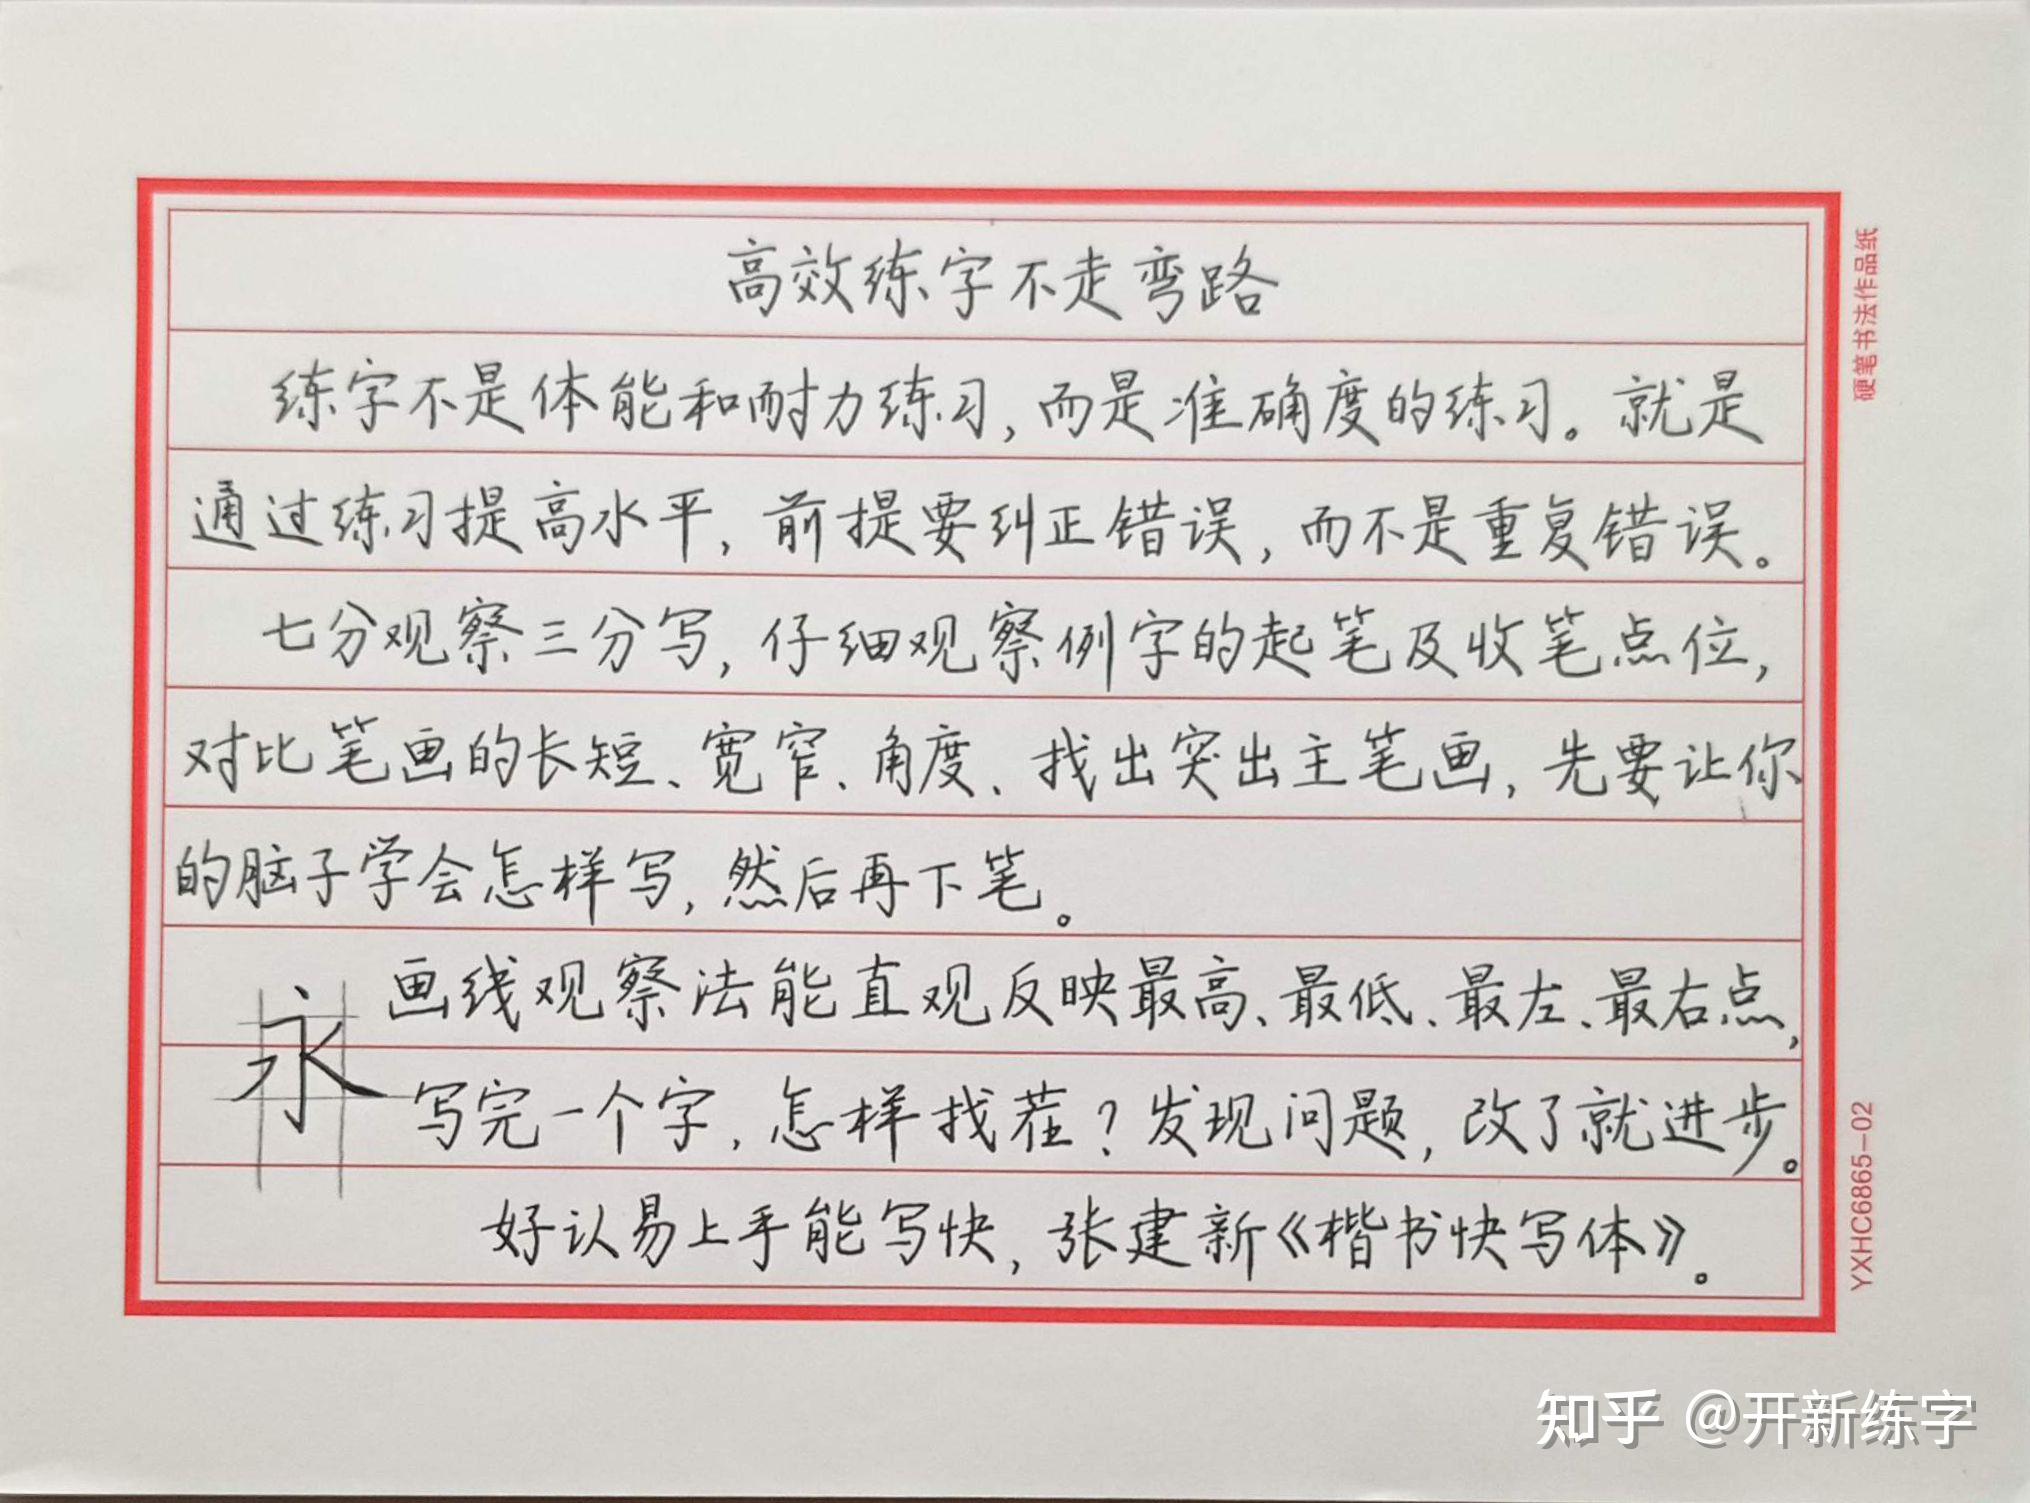 高效练字不走弯路
练字不是体能和耐力练习，而是准确度的练习。就是
通过练习提高水平，前提要纠正错误，而不是重复错误。
七分观察三分写，仔细观察例字的起笔及收笔点位，
对比笔画的长短、宽窄、角度、找出突出主笔画，先要让你
的脑子学会怎样写，然后再下笔。
永
画线观察法能直观反映最高、最低、最左、最右点，
写完一个字，怎样找茬？发现问题，改了就进步。
好认易上手能写快，张建新《楷书快写体》。
硬笔书法作品纸
YXHC6865-02
知乎 @开新练字